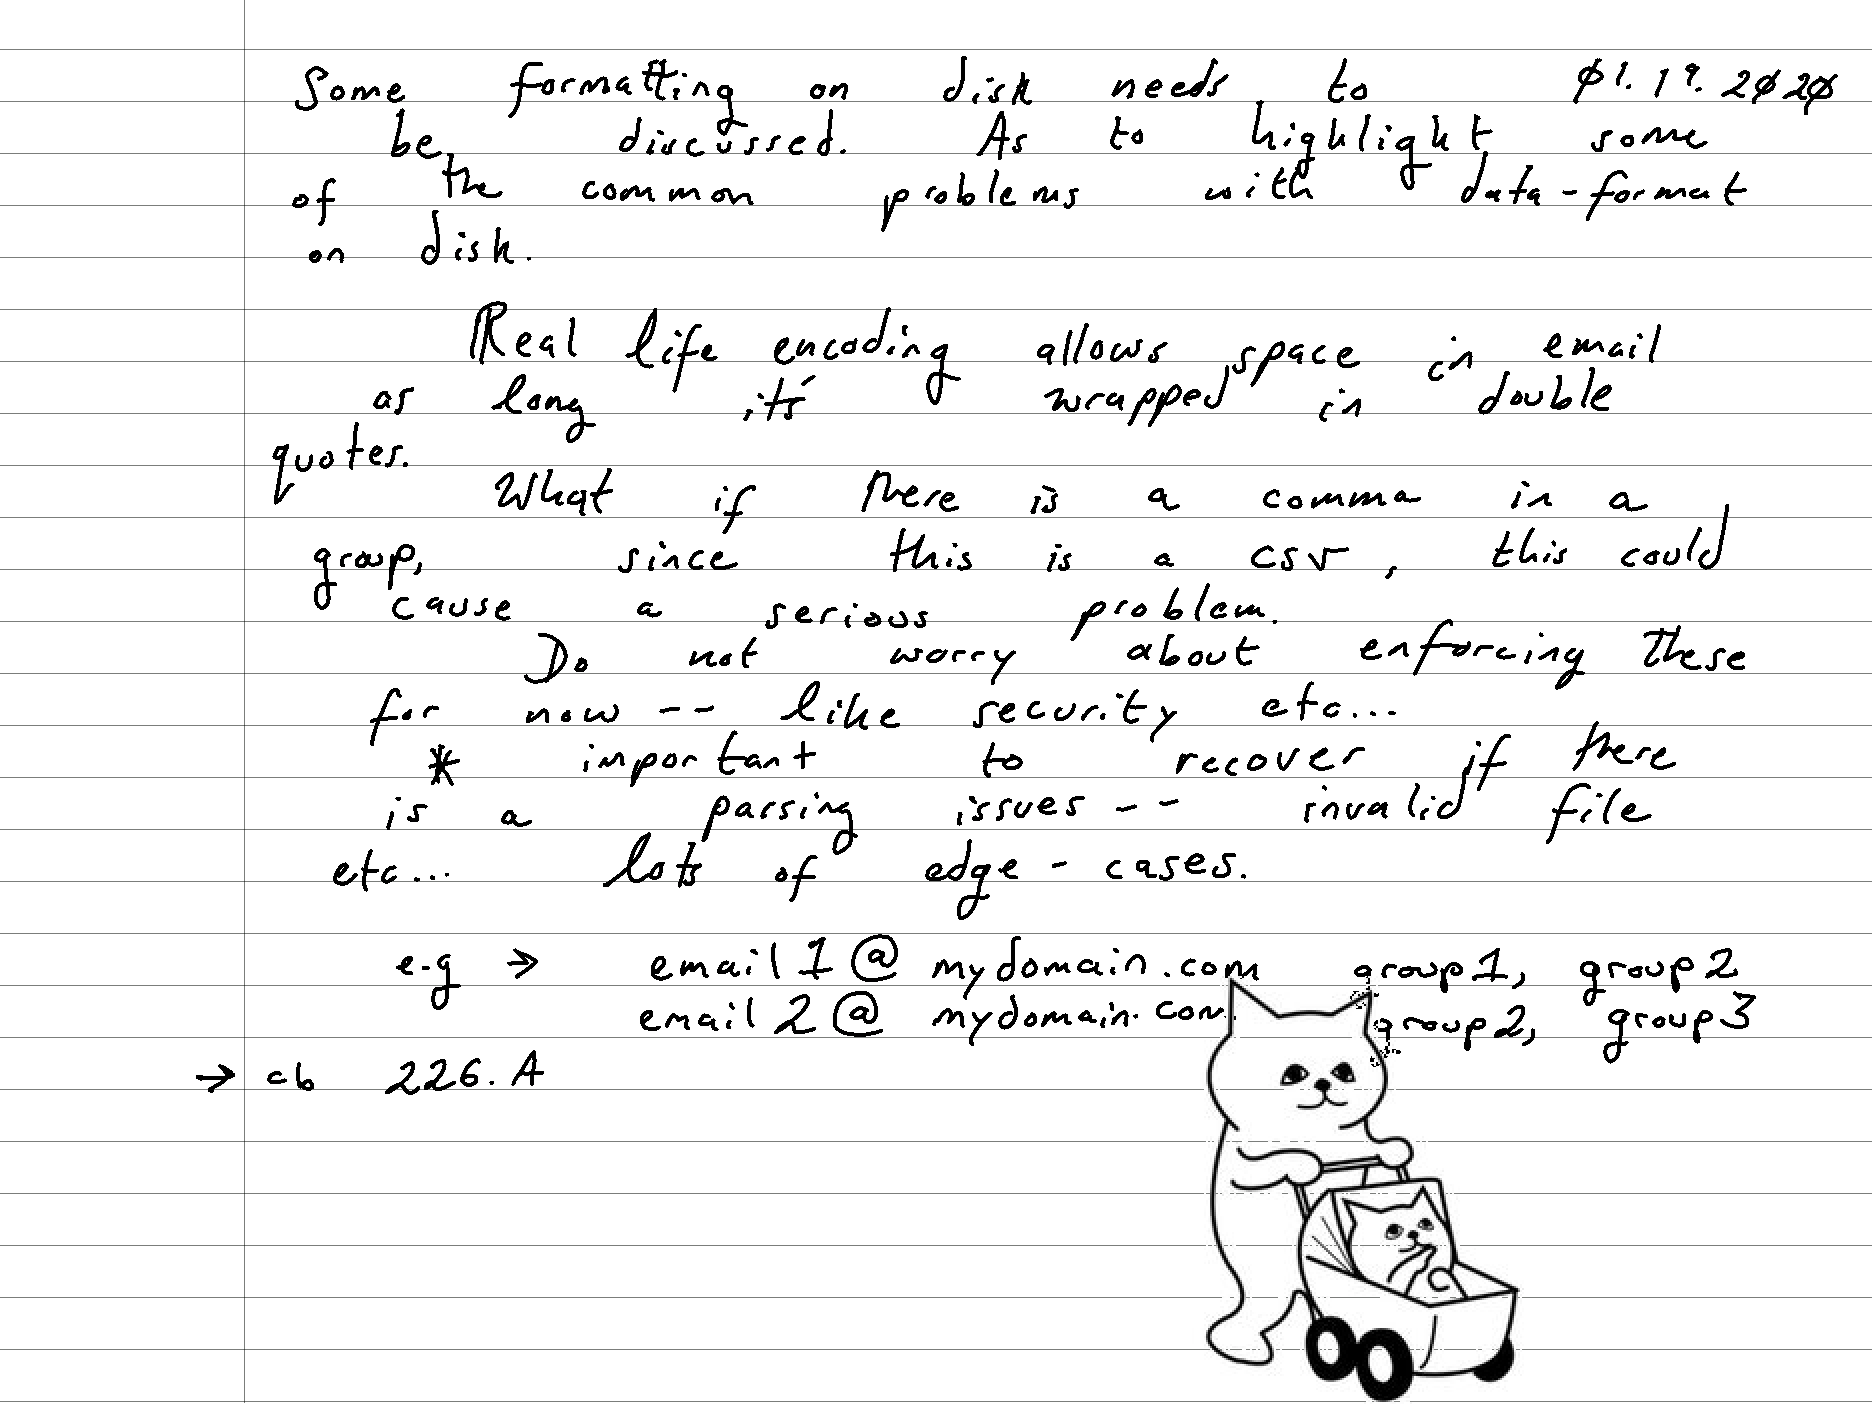 Some formatting on disk needs to 01.19.2020
be discussed. As to highlight some
of the common problems with data-format
on disk.
Real life encoding allows space in email
as long it's wrapped in double
quotes.
What if there is a comma in a
group, since this is a csv, this could
cause a serious problem.
Do not worry about enforcing these
for now -- like security etc...
* important to recover if there
is a parsing issues -- invalid file
etc... lots of edge - cases.
e.g → email1@mydomain.com group1, group2
email2@mydomain.com group2, group3
→ cb 226.A